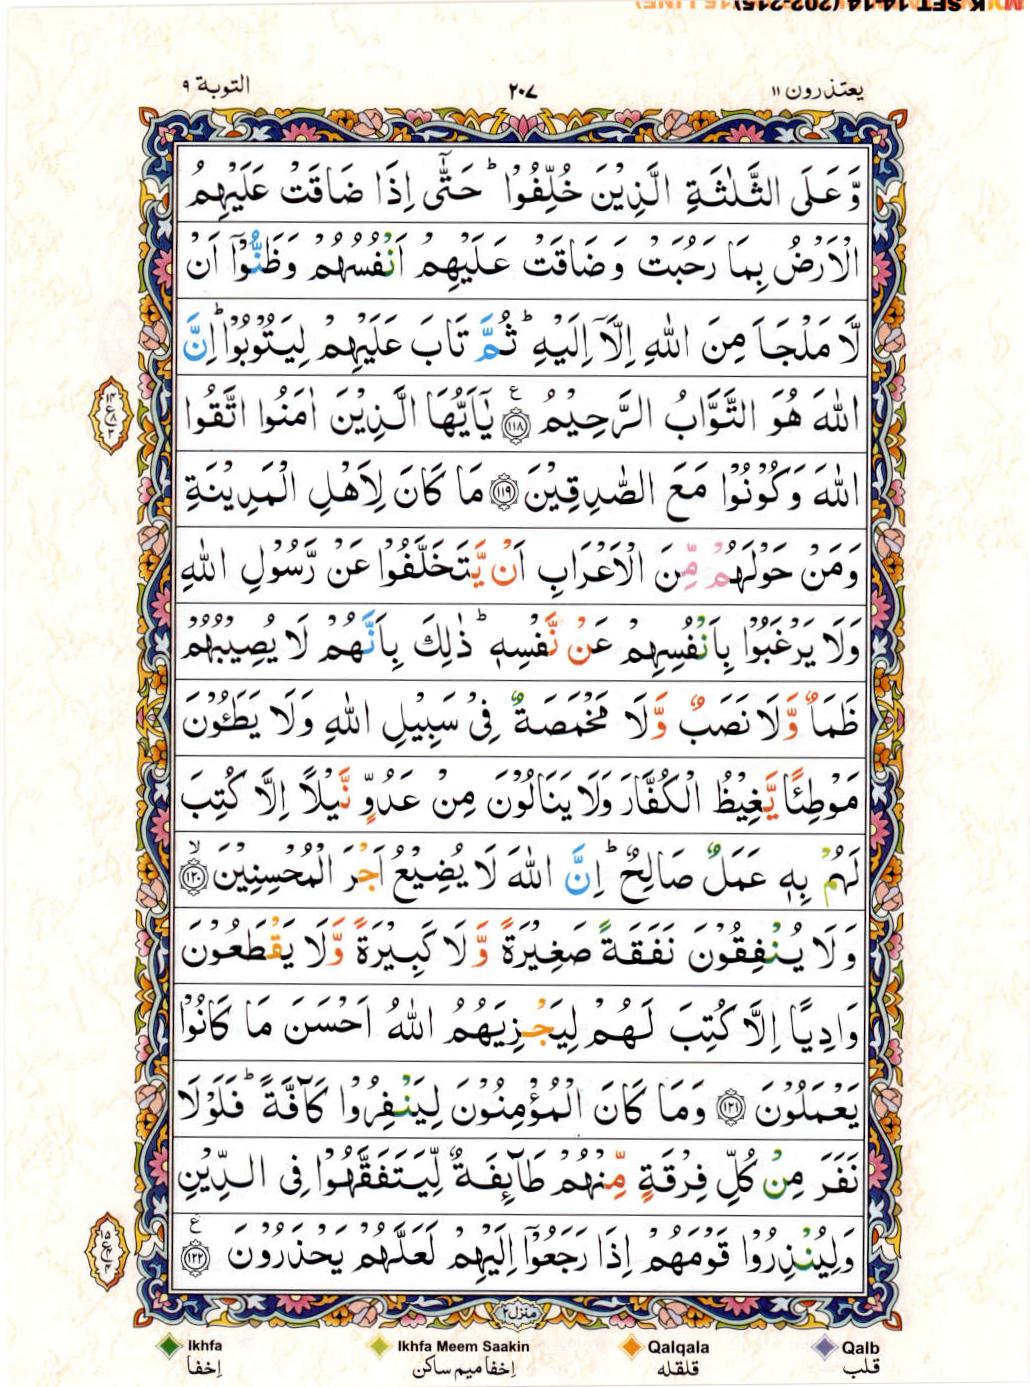 K SET 14-14 (202-215) (15 LINE)
يعتذرون ١١
٢٠٧
التوبة ٩
وَّعَلَى الثَّلٰثَةِ الَّذِيْنَ خُلِّفُوْا ؕ حَتّٰۤى اِذَا ضَاقَتْ عَلَيْهِمُ
الْاَرْضُ بِمَا رَحُبَتْ وَضَاقَتْ عَلَيْهِمْ اَنْفُسُهُمْ وَظَنُّوْۤا اَنْ
لَّا مَلْجَاَ مِنَ اللّٰهِ اِلَّاۤ اِلَيْهِ ؕ ثُمَّ تَابَ عَلَيْهِمْ لِيَتُوْبُوْا ؕ اِنَّ
اللّٰهَ هُوَ التَّوَّابُ الرَّحِيْمُ ۧ ﴿١١٨﴾ يٰۤاَيُّهَا الَّذِيْنَ اٰمَنُوا اتَّقُوا
اللّٰهَ وَكُوْنُوْا مَعَ الصّٰدِقِيْنَ ﴿١١٩﴾ مَا كَانَ لِاَهْلِ الْمَدِيْنَةِ
وَمَنْ حَوْلَهُمْ مِّنَ الْاَعْرَابِ اَنْ يَّتَخَلَّفُوْا عَنْ رَّسُوْلِ اللّٰهِ
وَلَا يَرْغَبُوْا بِاَنْفُسِهِمْ عَنْ نَّفْسِهٖ ؕ ذٰلِكَ بِاَنَّهُمْ لَا يُصِيْبُهُمْ
ظَمَاٌ وَّلَا نَصَبٌ وَّلَا مَخْمَصَةٌ فِيْ سَبِيْلِ اللّٰهِ وَلَا يَطَـُٔوْنَ
مَوْطِئًا يَّغِيْظُ الْكُفَّارَ وَلَا يَنَالُوْنَ مِنْ عَدُوٍّ نَّيْلًا اِلَّا كُتِبَ
لَهُمْ بِهٖ عَمَلٌ صَالِحٌ ؕ اِنَّ اللّٰهَ لَا يُضِيْعُ اَجْرَ الْمُحْسِنِيْنَ ۙ ﴿١٢٠﴾
وَلَا يُنْفِقُوْنَ نَفَقَةً صَغِيْرَةً وَّلَا كَبِيْرَةً وَّلَا يَقْطَعُوْنَ
وَادِيًا اِلَّا كُتِبَ لَهُمْ لِيَجْزِيَهُمُ اللّٰهُ اَحْسَنَ مَا كَانُوْا
يَعْمَلُوْنَ ﴿١٢١﴾ وَمَا كَانَ الْمُؤْمِنُوْنَ لِيَنْفِرُوْا كَآفَّةً ؕ فَلَوْلَا
نَفَرَ مِنْ كُلِّ فِرْقَةٍ مِّنْهُمْ طَآئِفَةٌ لِّيَتَفَقَّهُوْا فِى الدِّيْنِ
وَلِيُنْذِرُوْا قَوْمَهُمْ اِذَا رَجَعُوْۤا اِلَيْهِمْ لَعَلَّهُمْ يَحْذَرُوْنَ ۧ ﴿١٢٢﴾
منزل ٢
Ikhfa
Ikhfa Meem Saakin
Qalqala
Qalb
اِخفا
اِخفا میم ساکن
قلقله
قلب